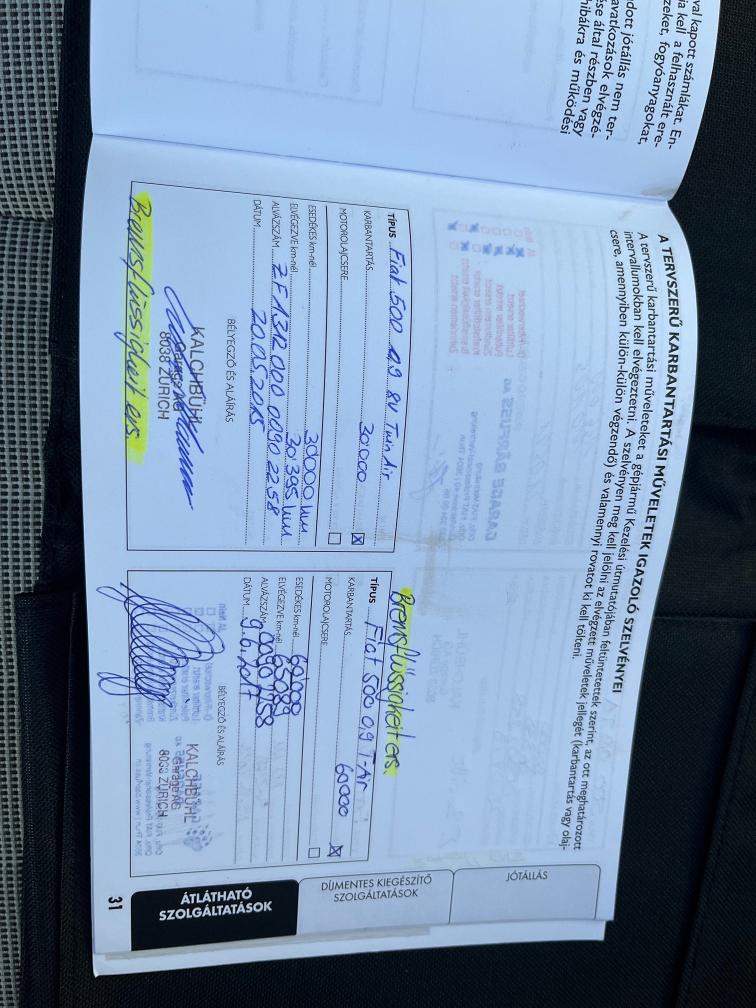 val kapott számlákat. En-
a kell a felhasznált ere-
zeket, fogyóanyagokat,
dott jótállás nem ter-
avatkozások elvégzé-
se által részben vagy
hibákra és működési
A TERVSZERŰ KARBANTARTÁSI MŰVELETEK IGAZOLÓ SZELVÉNYEI
A tervszerű karbantartási műveleteket a gépjármű Kezelési útmutatójában feltüntetettek szerint, az ott meghatározott
intervallumokban kell elvégeztetni. A szelvényen meg kell jelölni az elvégzett műveletek jellegét (karbantartás vagy olaj-
csere, amennyiben külön-külön végzendő) és valamennyi rovatot ki kell tölteni.
TÍPUS Fiat 500 0,9 8V Twin Air
KARBANTARTÁS 30'000
MOTOROLAJCSERE
ESEDÉKES km-nél 30000 km
ELVÉGEZVE km-nél 30'395 km
ALVÁZSZÁM ZFA312000 0090 2258
DÁTUM 20.05.2015
BÉLYEGZŐ ÉS ALÁÍRÁS
KALCHBÜHL
Garage AG
8038 ZÜRICH
Bremsflüssigkeit ers.
Bremsflüssigkeit ers.
TÍPUS Fiat 500 0,9 T Air
KARBANTARTÁS 60000
MOTOROLAJCSERE
ESEDÉKES km-nél 60'000
ELVÉGEZVE km-nél
ALVÁZSZÁM
DÁTUM
BÉLYEGZŐ ÉS ALÁÍRÁS
KALCHBÜHL
Garage AG
8038 ZÜRICH
JÓTÁLLÁS
DÍJMENTES KIEGÉSZÍTŐ
SZOLGÁLTATÁSOK
ÁTLÁTHATÓ
SZOLGÁLTATÁSOK
31